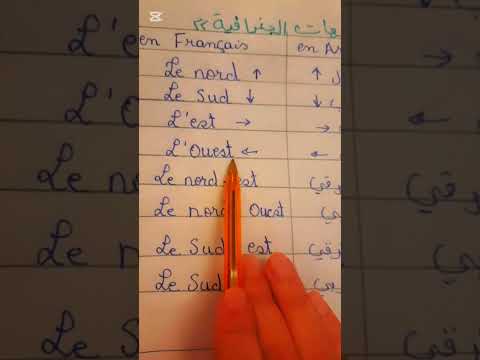 الجغرافية
en Français en
Le nord ↑ ↑
Le Sud ↓ ↓
L'est → →
L'Ouest ← ←
Le nord est
Le nord Ouest
Le Sud est
Le Sud